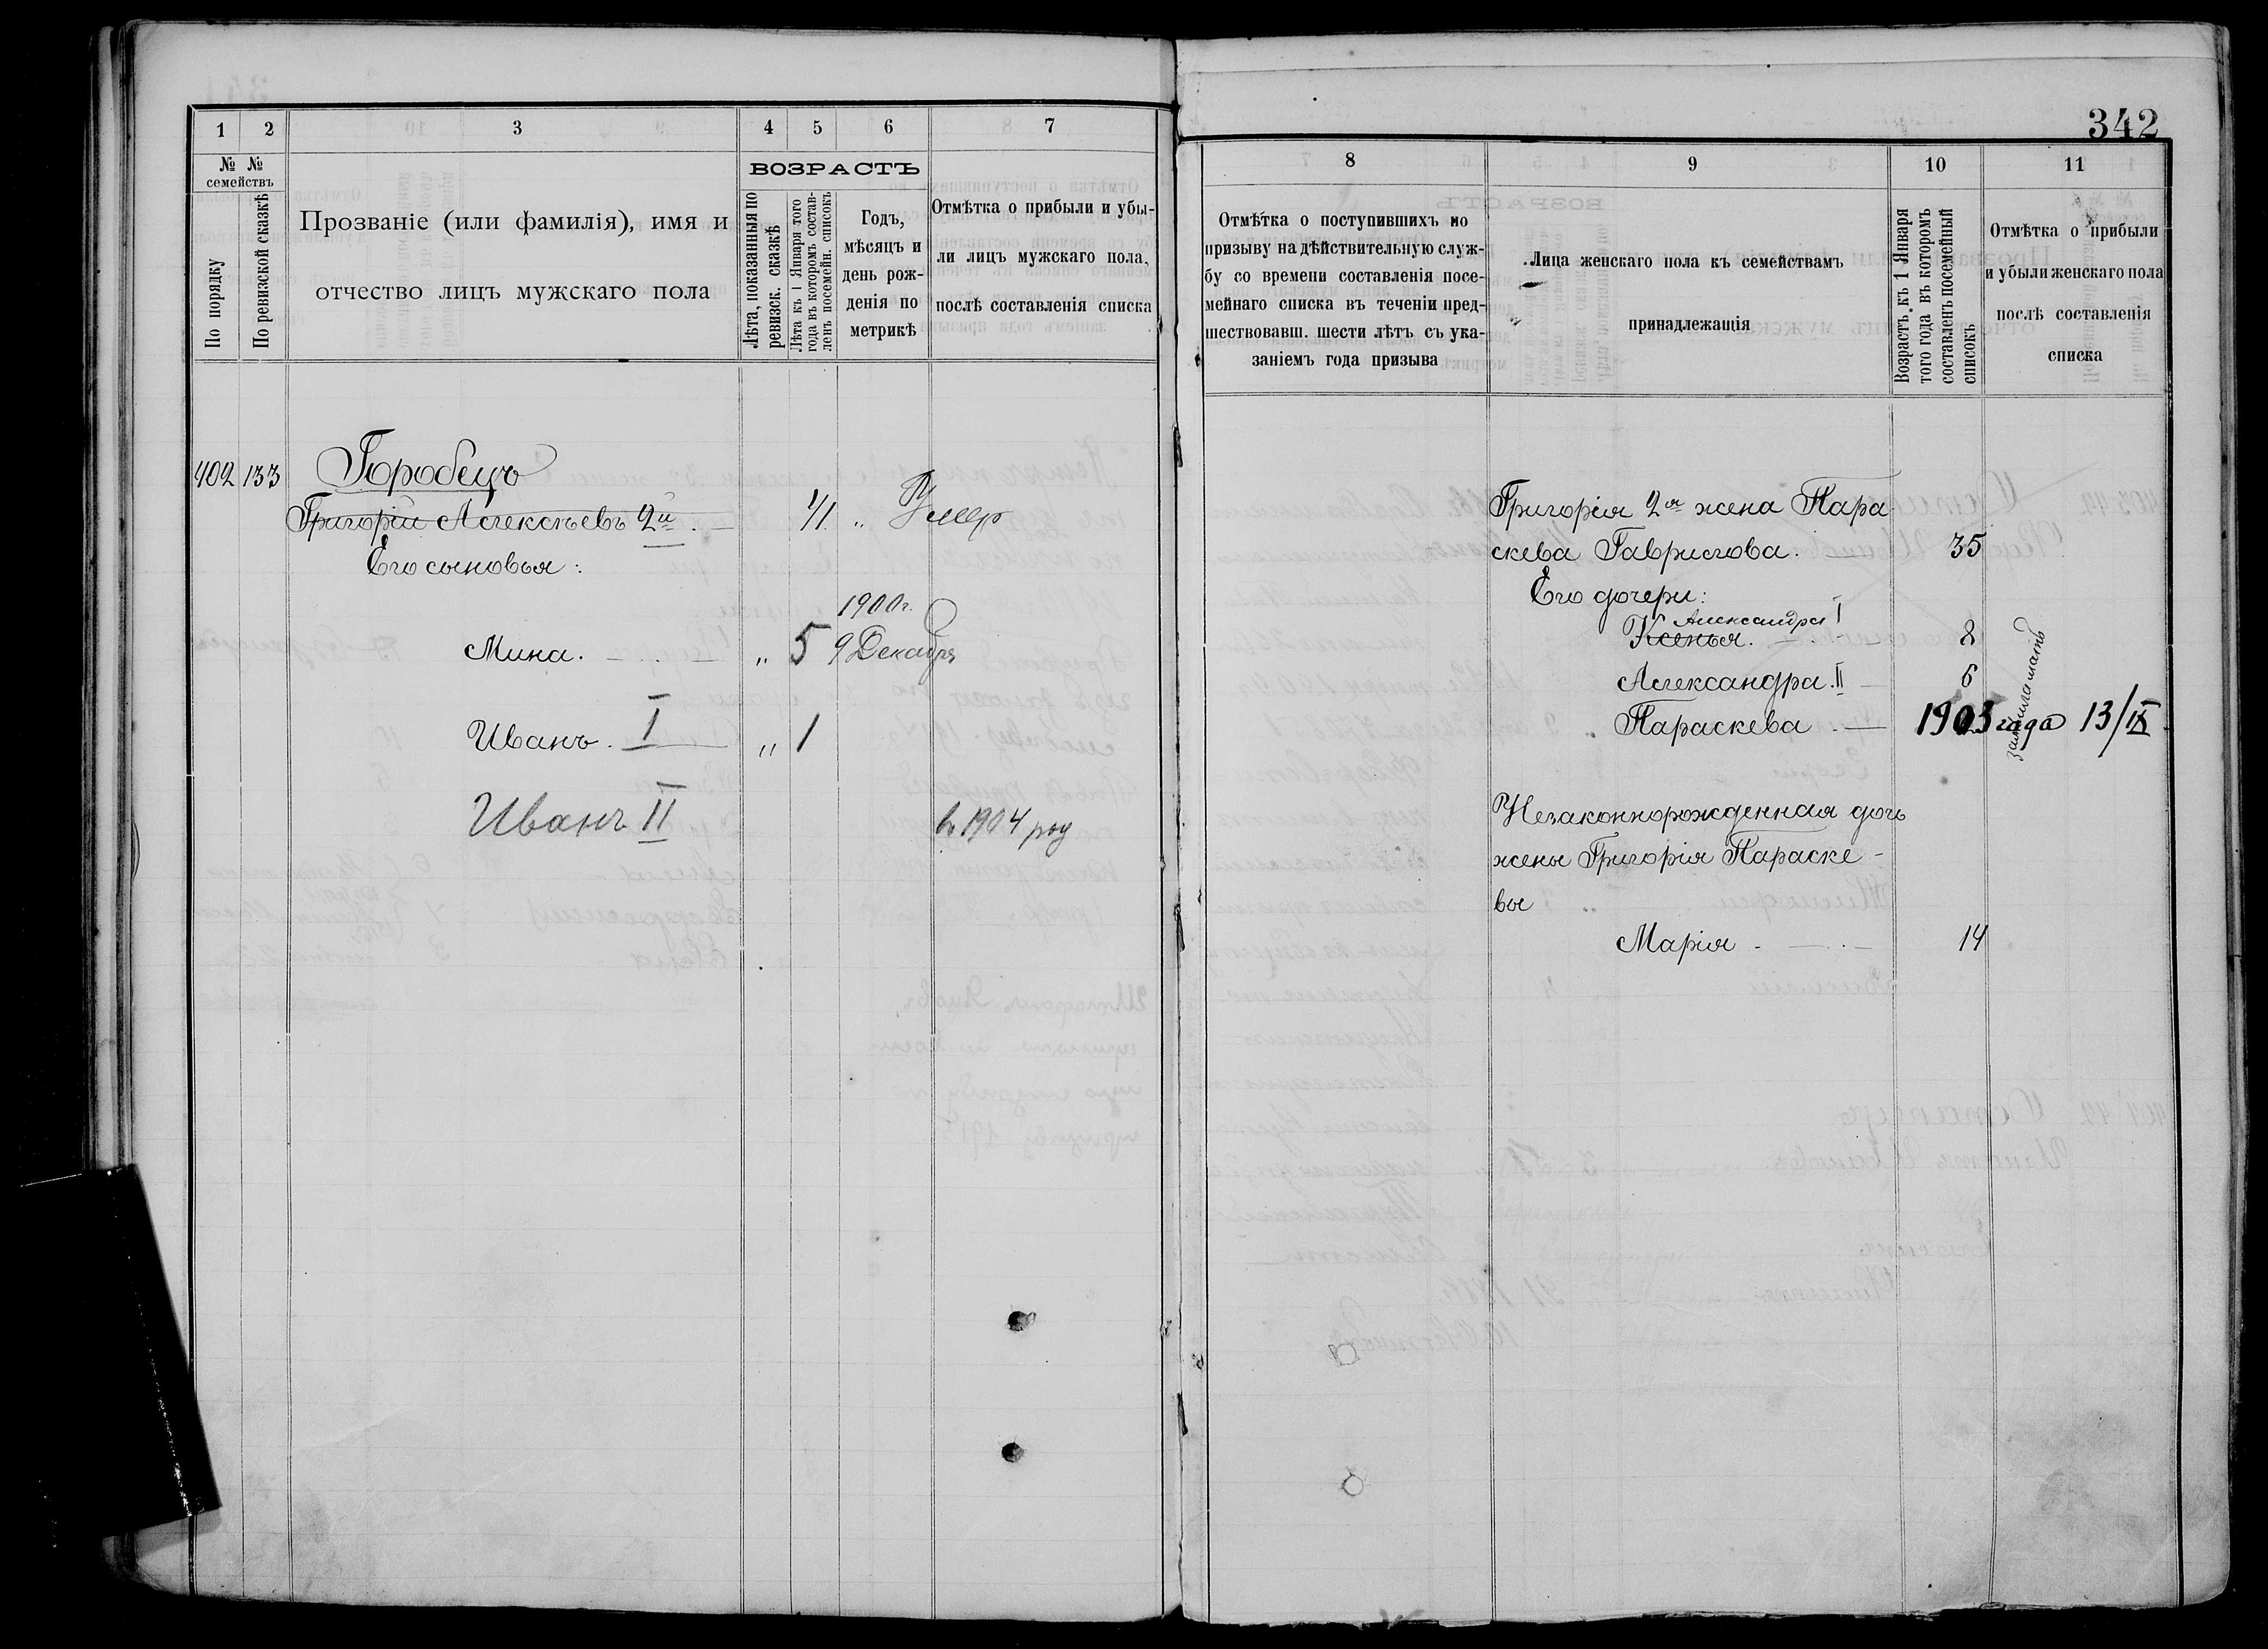 342
1 2 3 4 5 6 7
№ № семействъ
По порядку
По ревизской сказкѣ
Прозваніе (или фамилія), имя и
отчество лицъ мужскаго пола
ВОЗРАСТЪ
Лѣта, показанныя по
ревизск. сказкѣ
Лѣта къ 1 Января того
года въ которомъ состав-
ленъ посемейн. списокъ
Годъ,
мѣсяцъ и
день рож-
денія по
метрикѣ
Отмѣтка о прибыли и убы-
ли лицъ мужскаго пола,
послѣ составленія списка
402 133 Горобецъ
Григорій Алексѣевъ 2й. 41 „ Умер
Его сыновья:
1900г.
Мина. „ 5 9 Декабря
Иванъ. I „ 1
Иванъ II в 1904 роц
8 9 10 11
Отмѣтка о поступившихъ по
призыву на дѣйствительную служ-
бу со времени составленія посе-
мейнаго списка въ теченіи пред-
шествовавш. шести лѣтъ съ ука-
заніемъ года призыва
Лица женскаго пола къ семействамъ
принадлежащія
Возрастъ къ 1 Января
того года въ которомъ
составленъ посемейный
списокъ
Отмѣтка о прибыли
и убыли женскаго пола
послѣ составленія
списка
Григорія 2я жена Пара
скева Гаврилова. 35
Его дочери:
Александра I
Ксенья. 8
Александра. II 6
Параскева. 1903 года 13/IX
мать
Незаконнорожденная дочь
жены Григорія Параске-
вы
Марія 14